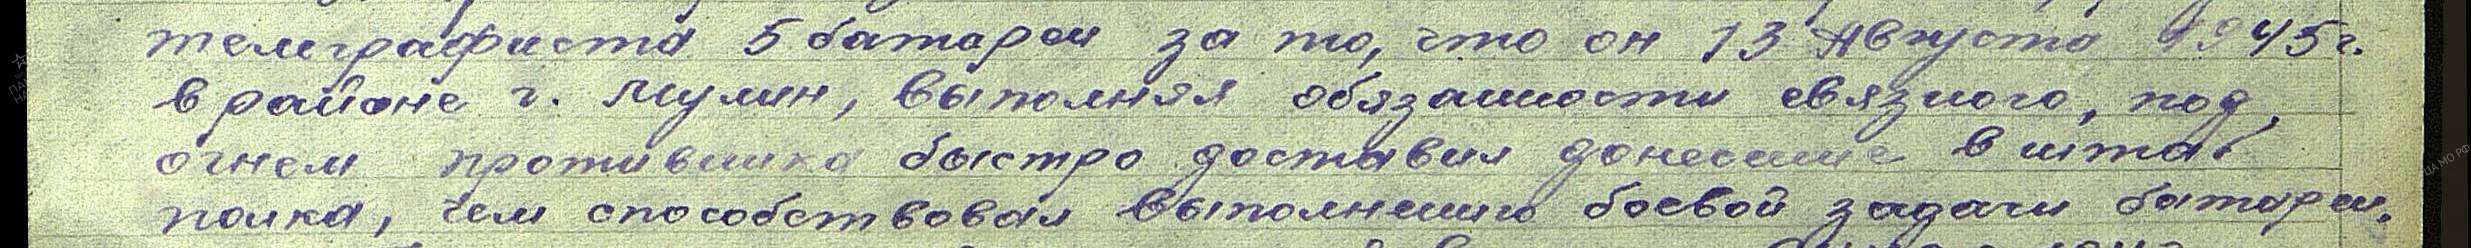 телеграфиста 5 батареи за то, что он 13 Августа 1945 г.
в районе г. Мулин, выполняя обязанности связного, под
огнем противника быстро доставил донесение в штаб
полка, чем способствовал выполнению боевой задачи батареи.